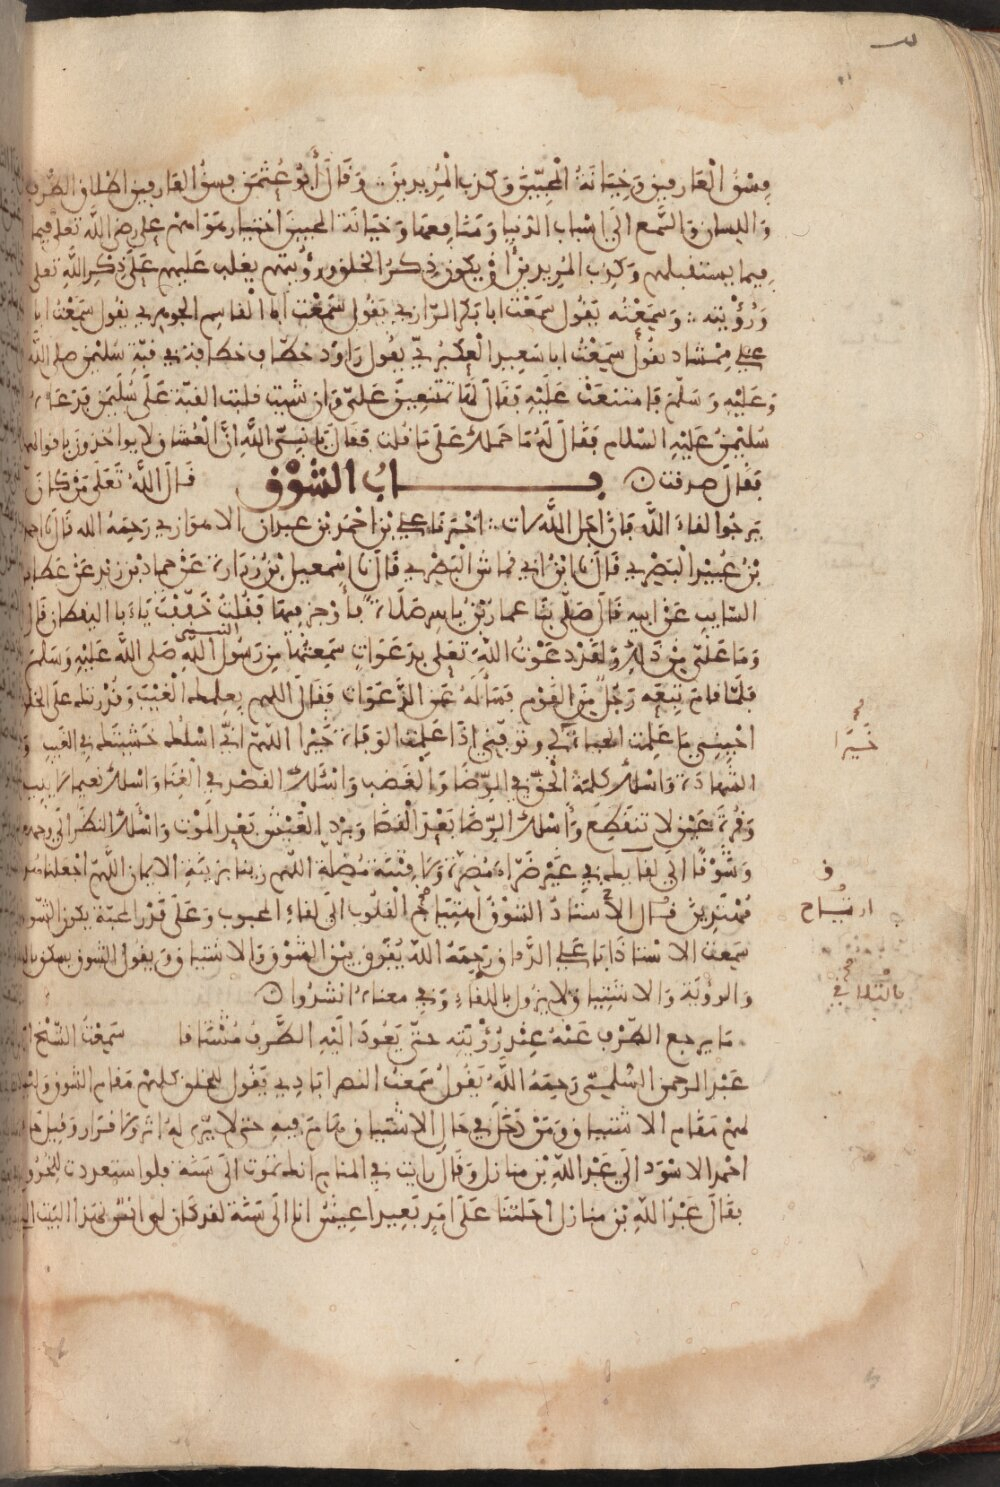 فسق العارفين وخيانة المحبين وكذب المريدين وقال أبو عثمن فسق العارفين اطلاق الطرف
واللسان والسمع الى اسباب الدنيا ومنافعها وخيانة المحبين اختيار هواهم على رضى الله تعلى فيما
فيما يستقبلهم وكذب المريدين أن يكون ذكر الخلق ورؤيتهم يغلب عليهم على ذكر الله تعلى
ورؤيته وسمعته يقول سمعت ابا بكر الرازي يقول سمعت أبا القاسم الجوهري يقول سمعت ابا
علي ممشاد يقول سمعت ابا سعيد العكبري يقول راود خطاف خطافة في قبة سليمن صلى الله
وعليه وسلم فامتنعت عليه فقال لها تمتنعين علي وان شيت قلبت القبة على سليمن فدعاه
سليمن عليه السلام فقال له ما حملك على ما قلت فقال يا نبي الله ان العشاق لا يواخذون باقوالهم
فقال صدقت
باب الشوق
قال الله تعلى من كان
يرجوا لقاء الله فان اجل الله لات اخبرنا علي بن احمد بن عبدان الاهوازي رحمه الله قال نا احمد
بن عبيد البصري قال نا ابن ابي قماش البصري قال نا اسمعيل بن زرارة عن حماد بن زيد عن عطا بن
السايب عن ابيه قال صلى بنا عمار بن ياسر صلاة فأوجز فيها فقلت خففت يا با اليقظان قال
وما علي من ذلك ولقد دعوت الله تعلى بدعوات سمعتها من رسول الله صلى الله عليه وسلم
النبي
فلما قام تبعه رجل من القوم فسأله عن الدعوات فقال اللهم بعلمك الغيب وقدرتك على الخلق
احييني ما علمت الحياة لي وتوفني إذا علمت الوفاة خيرا اللهم اني اسلك خشيتك في الغيب و
خيرا
الشهادة واسلك كلمة الحق في الرضا والغضب واسئلك القصد في الغنا واسلك نعيما لا يبيد
وقرة عين لا تنقطع وأسلك الرضا بعد القضا وبرد العيش بعد الموت واسألك النظر الى وجهك
وشوقا الى لقايك في غير ضراء مضرة ولا فتنة مضلة اللهم زينا بزينة الايمان اللهم اجعلنا هداة
مهتدين قال الأستاذ الشوق اهتياج القلوب الى لقاء المحبوب وعلى قدر المحبة يكون الشوق
ارتياح
سمعت الاستاذ ابا علي الدقاق رحمه الله يفرق بين الشوق والاشتياق ويقول الشوق يسكن باللقاء
باللقاء
والرؤية والاشتياق لا يزول باللقاء وفي معناه انشدوا
ما يرجع الطرف عنه عند رؤيته حتى يعود اليه الطرف مشتاقا سمعت الشيخ ابا
عبد الرحمن السلمي رحمه الله يقول سمعت النصراباذي يقول للخلق كلهم مقام الشوق وليس
لهم مقام الاشتياق ومن دخل في حال الاشتياق هام فيه حتى لا يرى له اثر ولا قرار وقيل جا
احمد الاسود الى عبد الله بن منازل وقال رايت في المنام انك تموت الى سنة فلو استعددت للخروج
فقال عبد الله بن منازل اجلتنا على امد بعيد اعيش انا الى سنة لقد كان لي انس بهذا البيت الذي